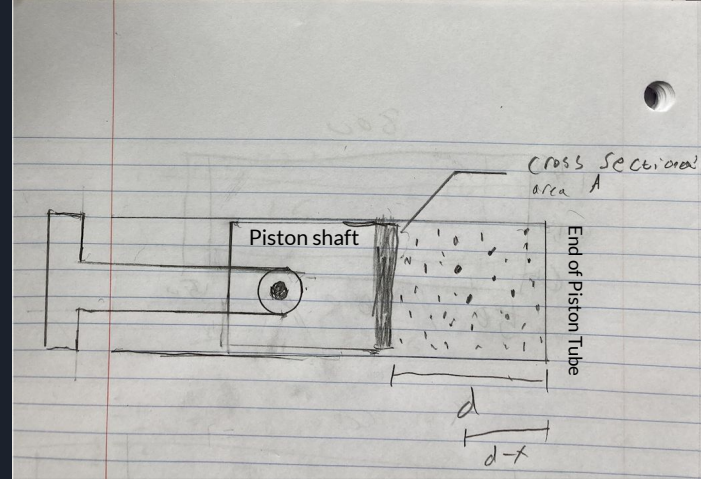 Cross Sectional
area A
Piston shaft
End of Piston Tube
d
d-x